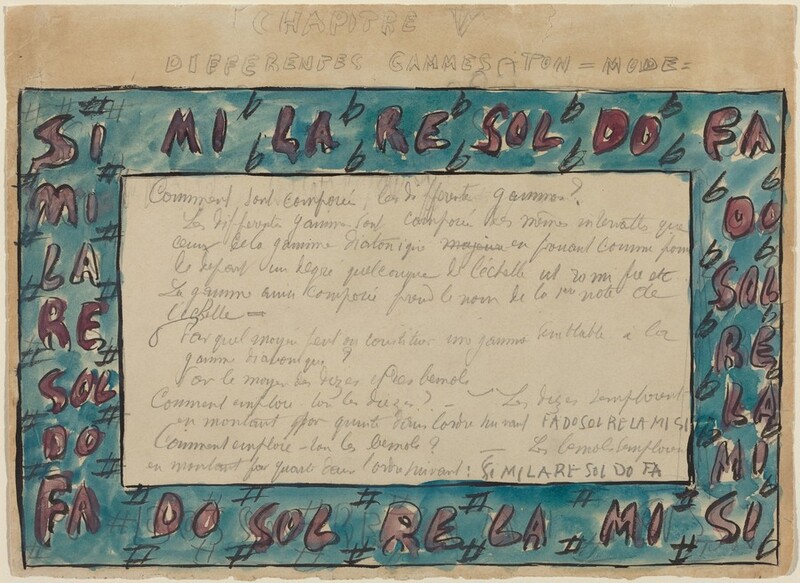 CHAPITRE V
DIFFERENTES GAMMES TON = MODE =
SI MI LA RE SOL DO FA
MI
LA
RE
SOL
DO
FA DO SOL RE LA MI SI
DO
SOL
RE
LA
MI
Comment sont composée les differente gammes?
Les differente gamme sont composée des mêmes intervalles que
ceux de la gamme diatonique majeure en prenant comme pour
le depart un degre quelconque de l'échelle ut re mi fa etc
La gamme ainsi composée prend le nom de la 1re note de
l'échelle =
Par quel moyen peut on constituer une gamme semblable à la
gamme diatonique?
Par le moyen des diezes et des bemols
Comment emploie-ton les diezes? — Les diezes s'emploient
en montant par quinte dans l'ordre suivant FA DO SOL RE LA MI SI
Comment emploie-ton les bemols? — Les bemols s'emploient
en montant par quarte dans l'ordre suivant: SI MI LA RE SOL DO FA